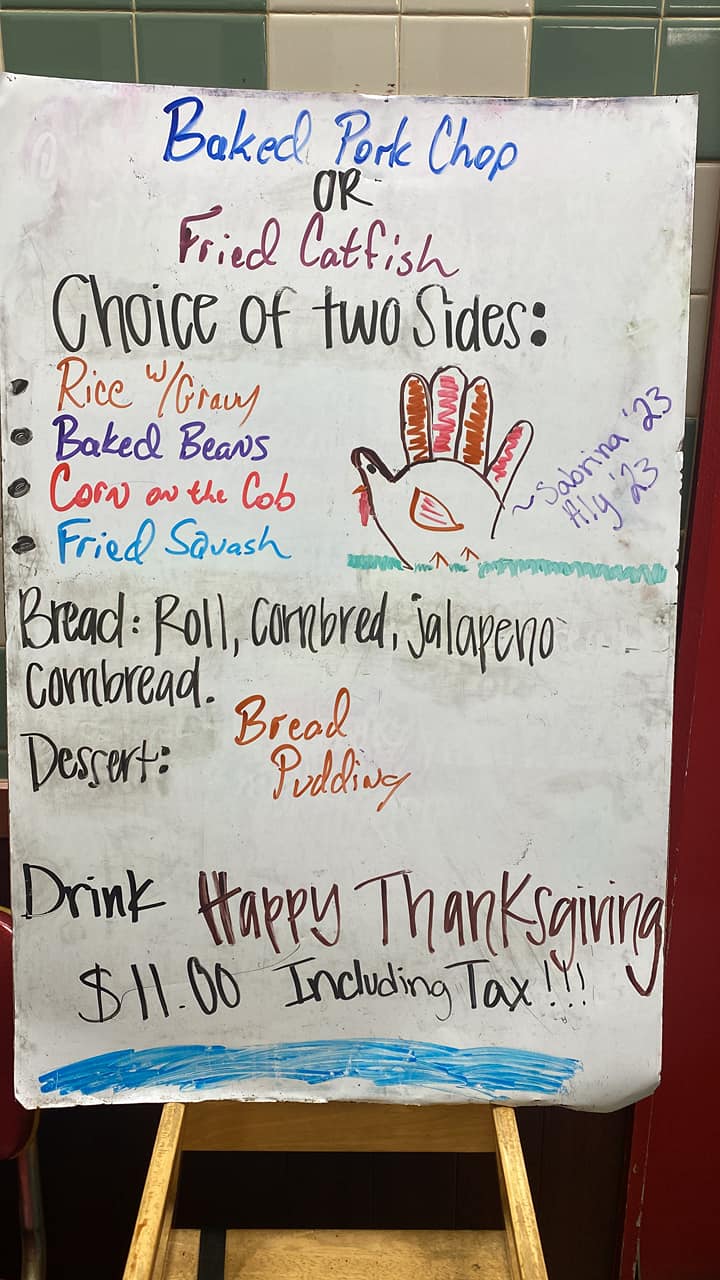 Baked Pork Chop
OR
Fried Catfish
Choice of two Sides:
Rice w/Gravy
Baked Beans
Corn on the Cob
Fried Squash
~Sabrina '23
Aly '23
Bread: Roll, Cornbred, jalapeno
Cornbread.
Dessert: Bread
Pudding
Drink Happy Thanksgiving
$11.00 Including Tax!!!